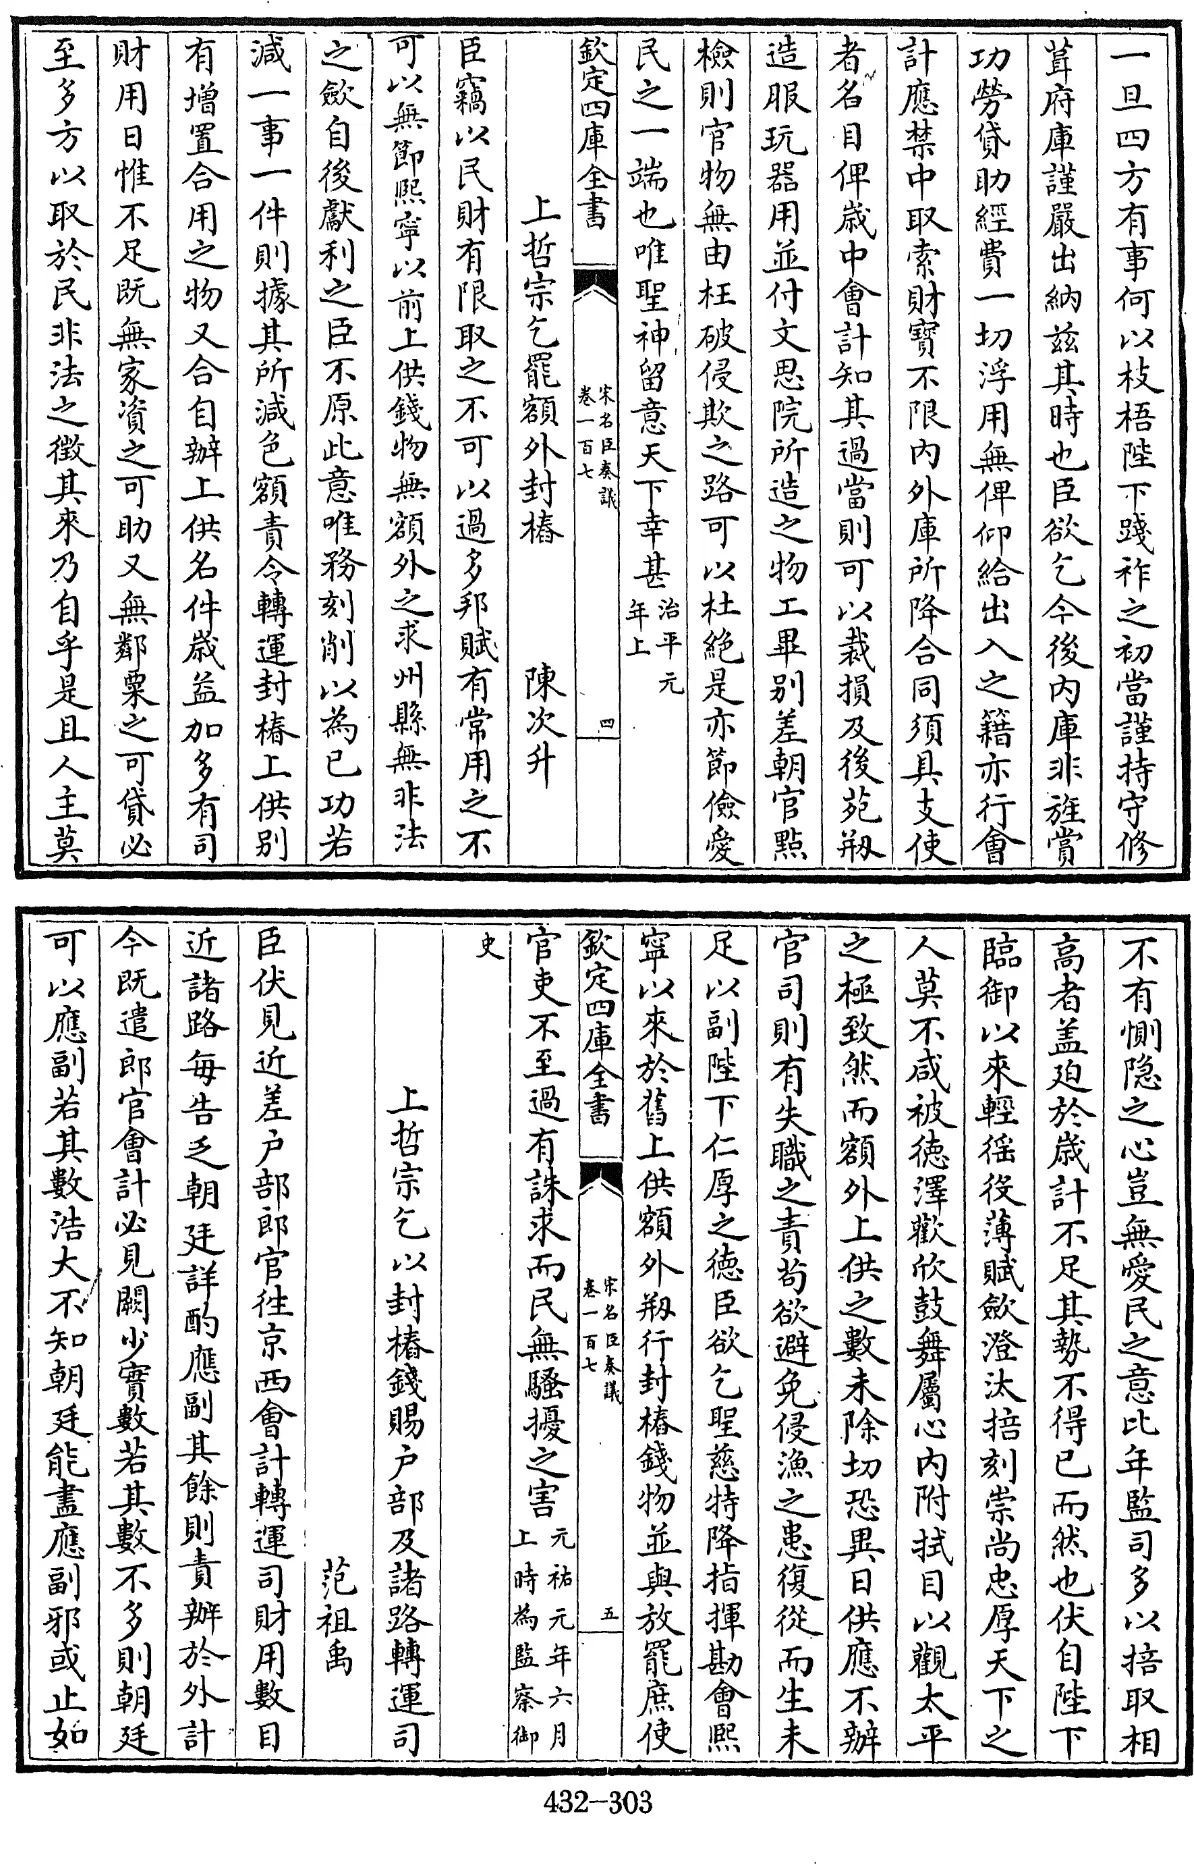 一旦四方有事何以枝梧陛下踐祚之初當謹持守修
葺府庫謹嚴出納兹其時也臣欲乞今後内庫非旌賞
功勞貸助經費一切浮用無俾仰給出入之籍亦行會
計應禁中取索財寶不限内外庫所降合同須具支使
者名目俾歳中會計知其過當則可以裁損及後苑刱
造服玩器用並付文思院所造之物工畢别差朝官點
檢則官物無由枉破侵欺之路可以杜絶是亦節儉愛
民之一端也唯聖神留意天下幸甚治平元年上
欽定四庫全書
宋名臣奏議
卷一百七
四
上哲宗乞罷額外封樁
陳次升
臣竊以民財有限取之不可以過多邦賦有常用之不
可以無節熙寧以前上供錢物無額外之求州縣無非法
之斂自後獻利之臣不原此意唯務刻削以為已功若
減一事一件則據其所減色額責令轉運封樁上供别
有增置合用之物又合自辦上供名件歳益加多有司
財用日惟不足既無家資之可助又無鄰粟之可貸必
至多方以取於民非法之徵其來乃自乎是且人主莫
不有惻隐之心豈無愛民之意比年監司多以掊取相
高者盖廹於歳計不足其勢不得已而然也伏自陛下
臨御以來輕徭役薄賦斂澄汰掊刻崇尚忠厚天下之
人莫不咸被德澤歡欣鼓舞屬心内附拭目以觀太平
之極致然而額外上供之數未除切恐異日供應不辦
官司則有失職之責茍欲避免侵漁之患復從而生未
足以副陛下仁厚之德臣欲乞聖慈特降指揮勘會熙
寧以來於舊上供額外刱行封樁錢物並與放罷庶使
欽定四庫全書
宋名臣奏議
卷一百七
五
官吏不至過有誅求而民無騷擾之害元祐元年六月上時為監察御
史
上哲宗乞以封樁錢賜户部及諸路轉運司
范祖禹
臣伏見近差户部郎官徃京西會計轉運司財用數目
近諸路每告乏朝廷詳酌應副其餘則責辦於外計
今既遣郎官會計必見闕少實數若其數不多則朝廷
可以應副若其數浩大不知朝廷能盡應副邪或止如
432-303